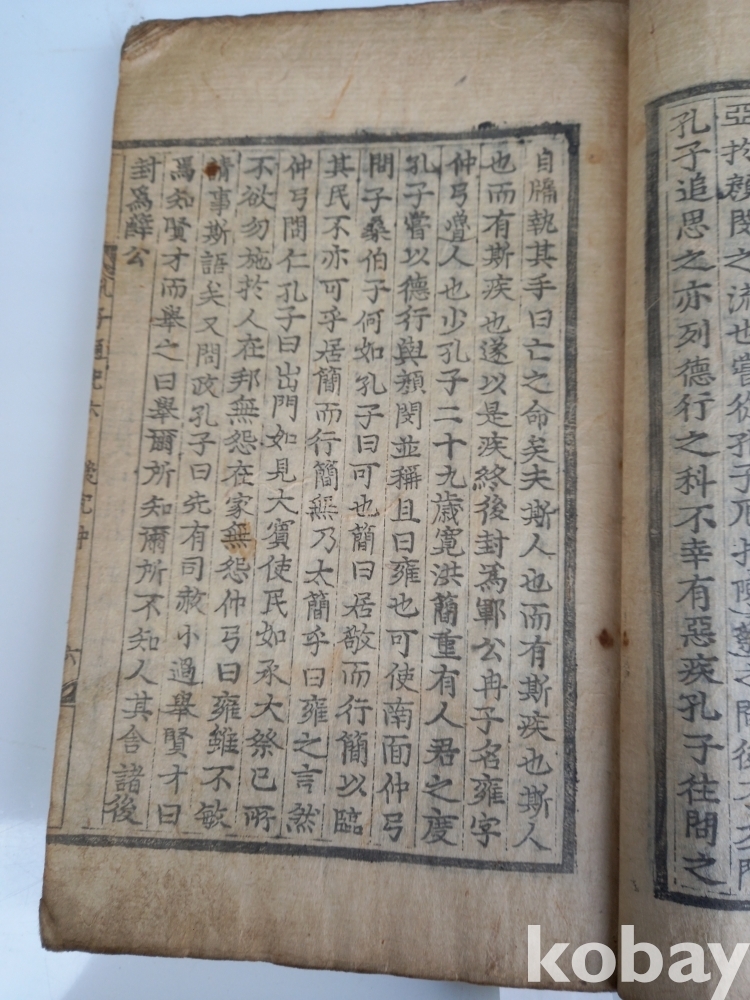 孔子追思之亦列德行之科不幸有惡疾孔子往問之
自牖執其手曰亡之命矣夫斯人也而有斯疾也斯人
也而有斯疾也遂以是疾終後封爲鄆公冉子名雍字
仲弓魯人也少孔子二十九歲寬洪簡重有人君之度
孔子嘗以德行與顏閔並稱且曰雍也可使南面仲弓
問子桑伯子何如孔子曰可也簡曰居敬而行簡以臨
其民不亦可乎居簡而行簡無乃太簡乎曰雍之言然
仲弓問仁孔子曰出門如見大賓使民如承大祭己所
不欲勿施於人在邦無怨在家無怨仲弓曰雍雖不敏
請事斯語矣又問政孔子曰先有司赦小過舉賢才曰
焉知賢才而舉之曰舉爾所知爾所不知人其舍諸後
封爲薛公
六
kobay